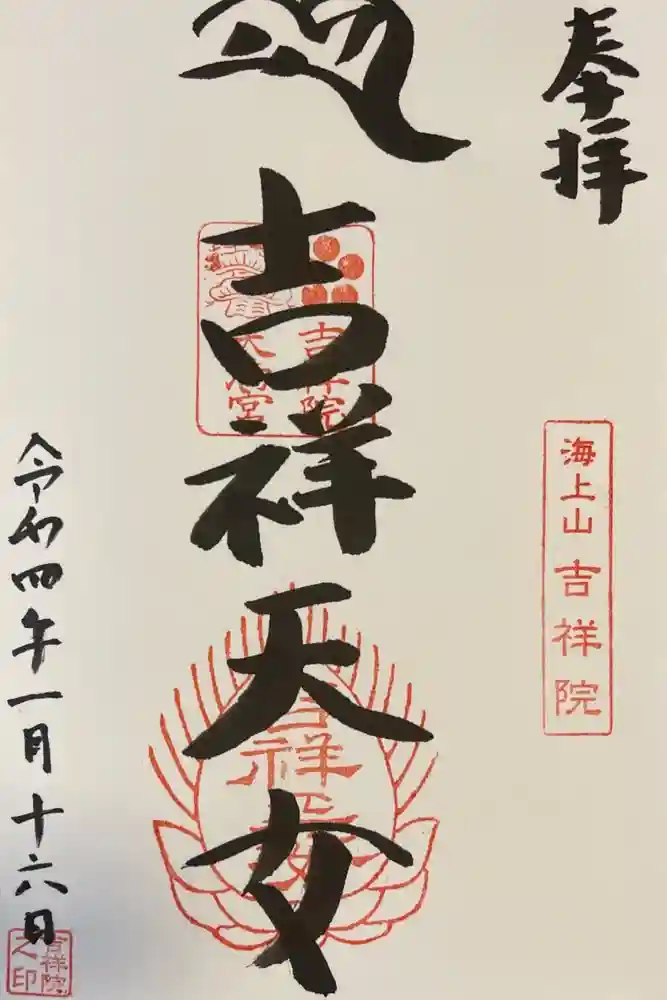 奉拝
海上山 吉祥院
吉祥天女
吉祥院
天満宮
吉祥天女
令和四年一月十六日
吉祥院
之印